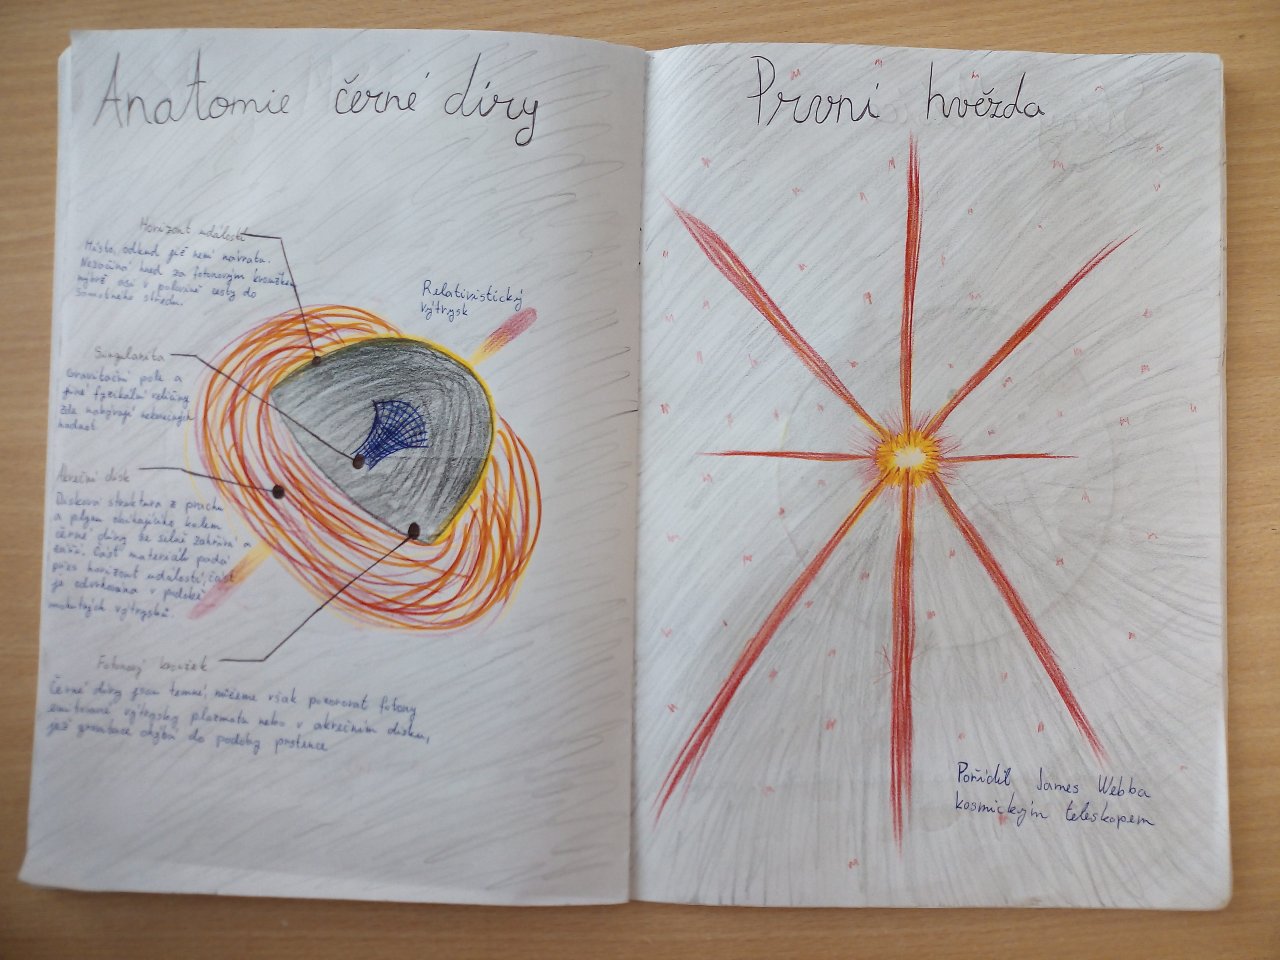 Anatomie černé díry
Horizont událostí
Místo, odkud již není návratu.
Nezačíná hned za fotonovým kroužkem
nýbrž asi v polovině cesty do
samotného středu.
Singularita
Gravitační pole a
jiné fyzikální veličiny
zde nabývají nekonečných
hodnot.
Akreční disk
Disková struktura z prachu
a plynu obíhajícího kolem
černé díry se silně zahřívá a
září. Část materiálu padá
přes horizont událostí, část
je odvrhována v podobě
mohutných výtrysků.
Relativistický
výtrysk
Fotonový kroužek
Černé díry jsou temné, můžeme však pozorovat fotony
emitované výtrysky plazmatu nebo v akrečním disku,
jež gravitace ohýbá do podoby prstence
První hvězda
Pořídil James Webba
kosmickým teleskopem